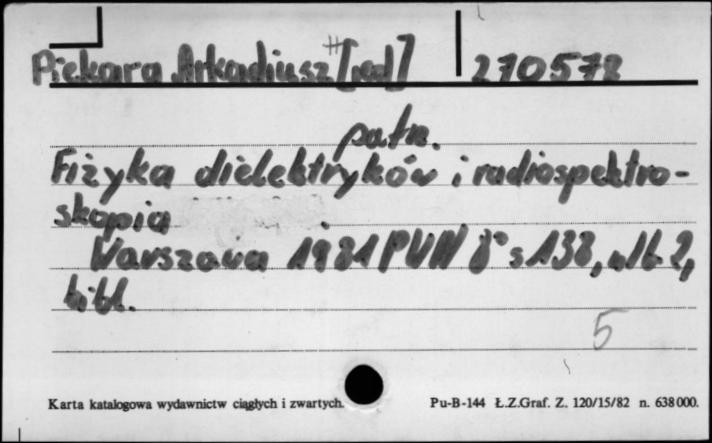 Piekara Arkadiusz # [red] 270578
patrz.
Fizyka dielektryków i radiospektro-
skopia
Warszawa 1981 PWN 8° s 138, nlb 2,
bibl.
5
Karta katalogowa wydawnictw ciągłych i zwartych. Pu-B-144 Ł.Z.Graf. Z. 120/15/82 n. 638000.